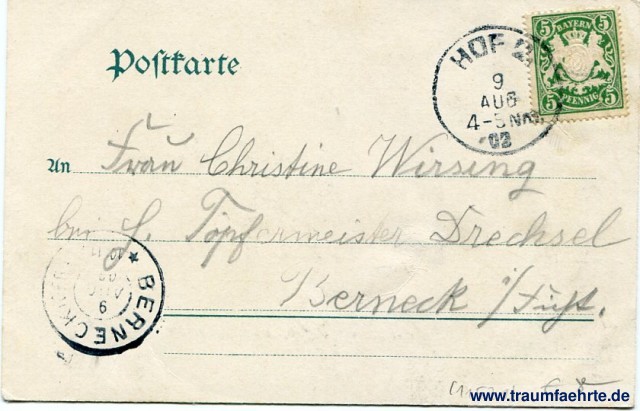 Postkarte
HOF 2
9
AUG
4-5 NM
02
5 BAYERN 5
5 PFENNIG 5
An Frau Christine Wirsing
bei H. Töpfermeister Drechsel
Berneck i/Ficht.
BERNECK
9
AUG
www.traumfaehrte.de